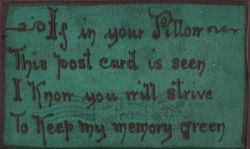 If in your Pillow
This post card is seen
I know you will strive
To Keep my memory green